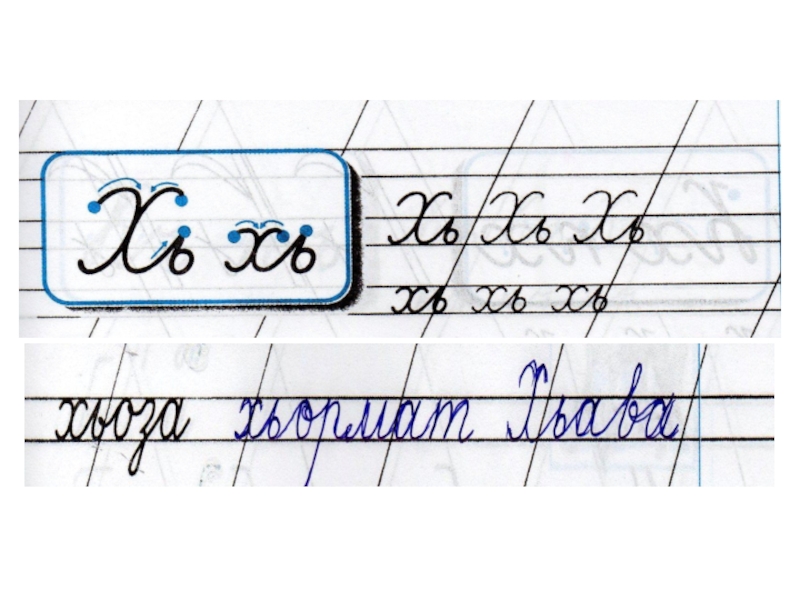 Хь хь Хь Хь Хь
хь хь хь
хьоза хьормат Хьава